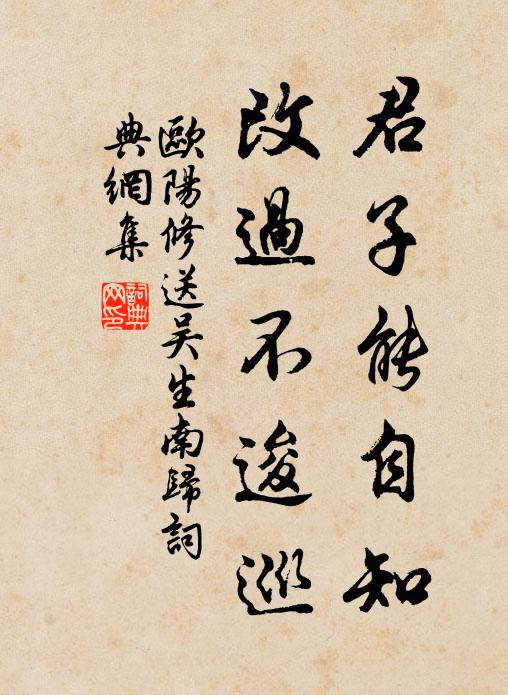 君子能自知
改過不逡巡
歐陽修送吴生南歸詞
典網集
詞典網印